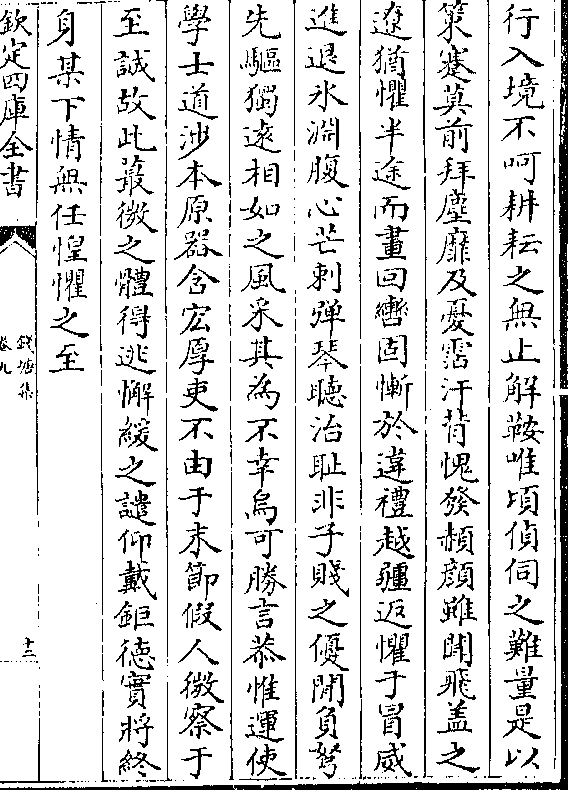 行入境不呵耕耘之無止解鞍唯頃偵伺之難量是以
策蹇莫前拜塵靡及憂霑汗背愧發赬顔雖開飛盖之
遼猶懼半途而畫回轡固慚於違禮越疆返懼于冒威
進退氷淵腹心芒刺彈琴聴治耻非子賤之優閒負弩
先驅獨逺相如之風采其為不幸烏可勝言恭惟運使
學士道渉本原器含宏厚吏不由于末節假人微察于
至誠故此蕞微之體得逃懈緩之譴仰戴鉅徳實将終
身某下情無任惶懼之至
欽定四庫全書
錢塘集
卷九
十三